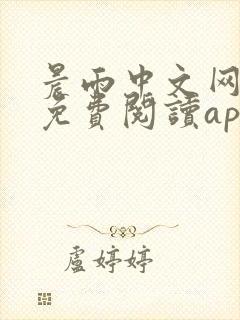 晨雨中文网
免費閱讀ap
盧婷婷